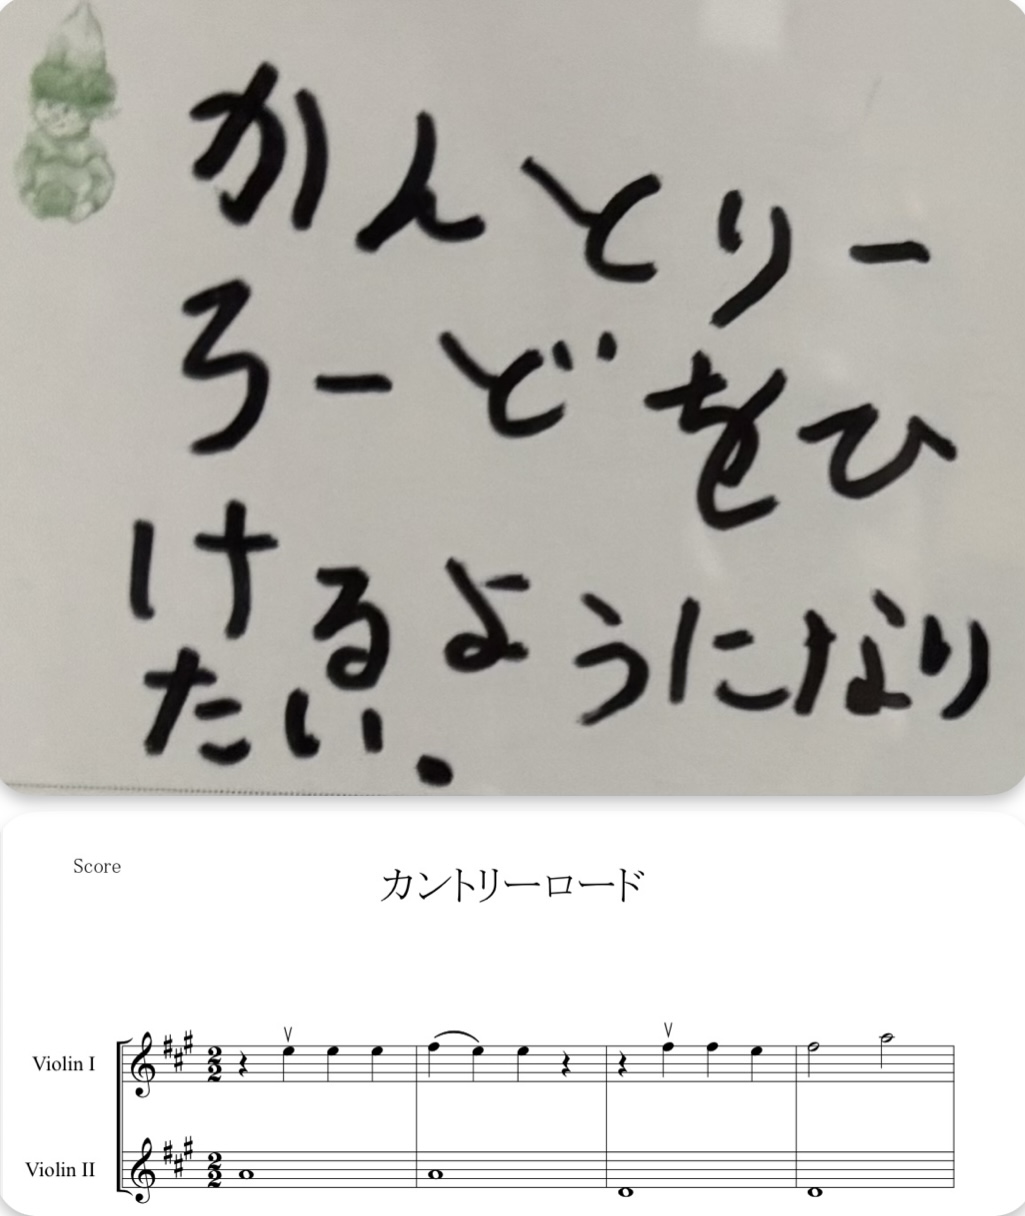 かんとりー
ろーどをひ
けるようになり
たい.
Score
カントリーロード
Violin I
Violin II